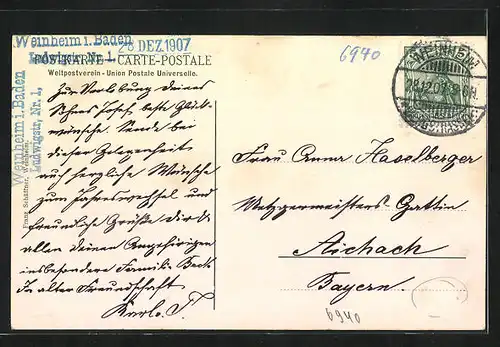 Weinheim i. Baden
Ludwigstr. Nr. 1.
28 DEZ. 1907
6940
POSTKARTE - CARTE-POSTALE
Weltpostverein - Union Postale Universelle.
WEINHEIM
28.12.07
Weinheim i. Baden
Ludwigstr. Nr. 1.
Zur Verlobung Deines
Sohnes Josef beste Glück-
wünsche. Sende bei
dieser Gelegenheit
auch herzliche Wünsche
zum Jahreswechsel und
freundliche Grüße Dir &
allen Deinen Angehörigen
insbesondere Familie Beck.
In alter Freundschaft
Karl T.
Frau Anna Haselberger
Metzgermeisters Gattin
Aichach
Bayern.
6940